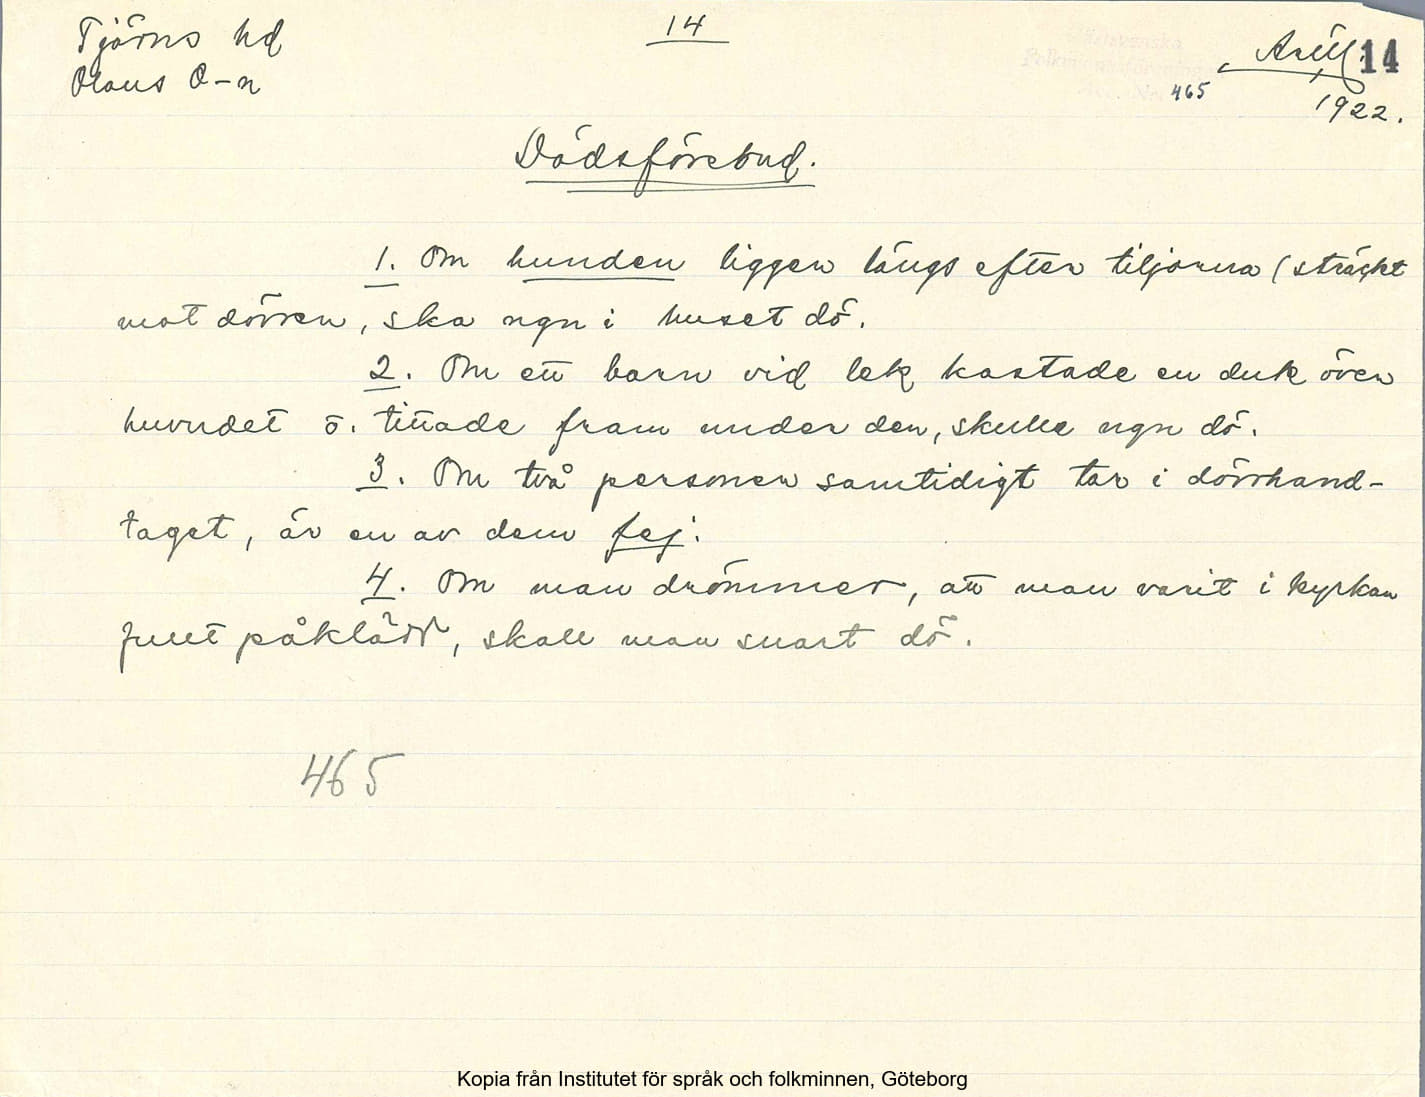 Tjörns hd
Olaus O-n
14
14
465
1922.
Dödsförebud.
1. Om hunden ligger längs efter tiljorna (sträckt
mot dörren, ska ngn i huset dö.
2. Om ett barn vid lek kastade en duk över
huvudet o. tittade fram under den, skulle ngn dö.
3. Om två personer samtidigt tar i dörrhand-
taget, är en av dem fej.
4. Om man drömmer, att man varit i kyrkan
fullt påklädd, skall man snart dö.
465
Kopia från Institutet för språk och folkminnen, Göteborg